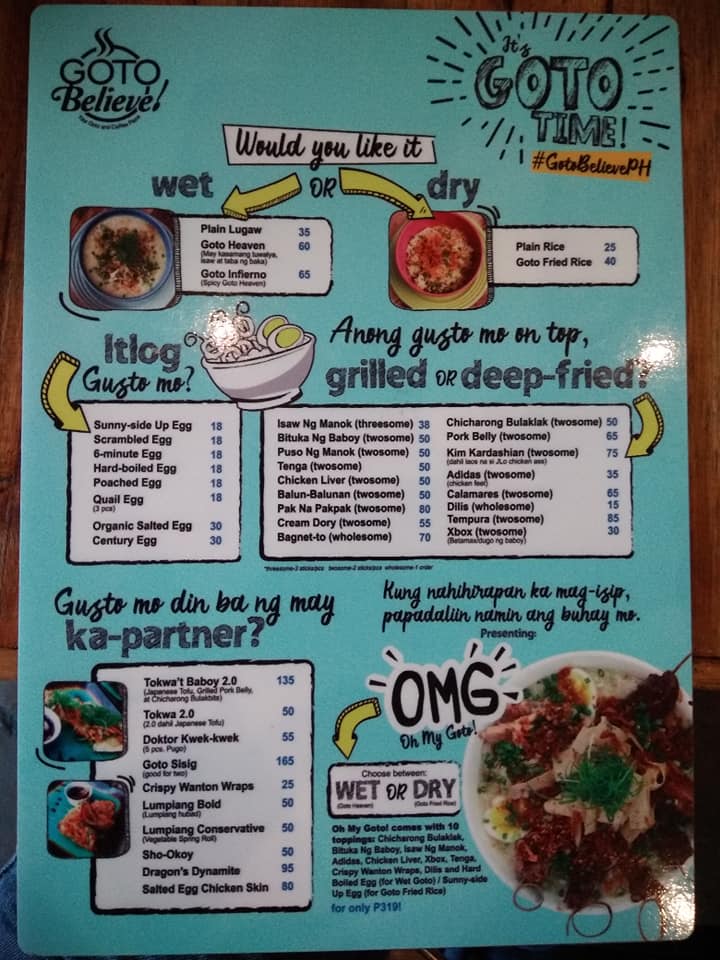 GOTO
Believe!
Your Goto and Coffee Place
It's
GOTO
TIME!
#GotoBelievePH
Would you like it
wet OR dry
Plain Lugaw 35
Goto Heaven 60
(May kasamang tuwalya,
isaw at taba ng baka)
Goto Infierno 65
(Spicy Goto Heaven)
Plain Rice 25
Goto Fried Rice 40
Itlog
Gusto mo?
Sunny-side Up Egg 18
Scrambled Egg 18
6-minute Egg 18
Hard-boiled Egg 18
Poached Egg 18
Quail Egg 18
(3 pcs)
Organic Salted Egg 30
Century Egg 30
Anong gusto mo on top,
grilled OR deep-fried?
Isaw Ng Manok (threesome) 38
Bituka Ng Baboy (twosome) 50
Puso Ng Manok (twosome) 50
Tenga (twosome) 50
Chicken Liver (twosome) 50
Balun-Balunan (twosome) 50
Pak Na Pakpak (twosome) 80
Cream Dory (twosome) 55
Bagnet-to (wholesome) 70
Chicharong Bulaklak (twosome) 50
Pork Belly (twosome) 65
Kim Kardashian (twosome) 75
(dahil laos na si JLo chicken ass)
Adidas (twosome) 35
(chicken feet)
Calamares (twosome) 65
Dilis (wholesome) 15
Tempura (twosome) 85
Xbox (twosome) 30
(Betamax/dugo ng baboy)
*threesome-3 sticks/pcs twosome-2 sticks/pcs wholesome-1 order
Gusto mo din ba ng may
ka-partner?
Tokwa't Baboy 2.0 135
(Japanese Tofu, Grilled Pork Belly,
at Chicharong Bulaklbits)
Tokwa 2.0 50
(2.0 dahil Japanese Tofu)
Doktor Kwek-kwek 55
(5 pcs. Pugo)
Goto Sisig 165
(good for two)
Crispy Wanton Wraps 25
Lumpiang Bold 50
(Lumpiang hubad)
Lumpiang Conservative 50
(Vegetable Spring Roll)
Sho-Okoy 50
Dragon's Dynamite 95
Salted Egg Chicken Skin 80
Kung nahihirapan ka mag-isip,
papadaliin namin ang buhay mo.
Presenting:
OMG
Oh My Goto!
Choose between:
WET OR DRY
(Goto Heaven) (Goto Fried Rice)
Oh My Goto! comes with 10
toppings: Chicharong Bulaklak,
Bituka Ng Baboy, Isaw Ng Manok,
Adidas, Chicken Liver, Xbox, Tenga,
Crispy Wanton Wraps, Dilis and Hard
Boiled Egg (for Wet Goto) / Sunny-side
Up Egg (for Goto Fried Rice)
for only P319!